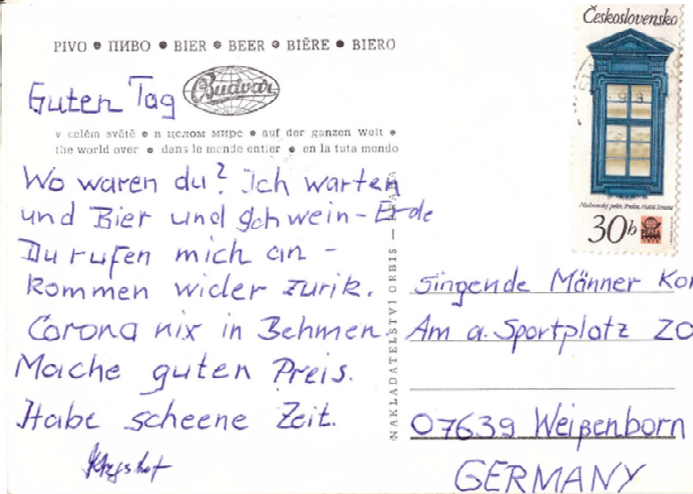 Československo
PIVO • ПИВО • BIER • BEER • BIÈRE • BIERO
Guten Tag
Budvar
v celém světě • в целом мире • auf der ganzen Welt •
the world over • dans le monde entier • en la tuta mondo
Wo waren du? Ich warten
und Bier und Schwein-Erde
Du rufen mich an -
kommen wider zurik.
Corona nix in Behmen.
Mache guten Preis.
Habe scheene Zeit.
NAKLADATELSTVÍ ORBIS — PRAHA
30h
Singende Männer Kor
Am a. Sportplatz ZO
07639 Weißenborn
GERMANY